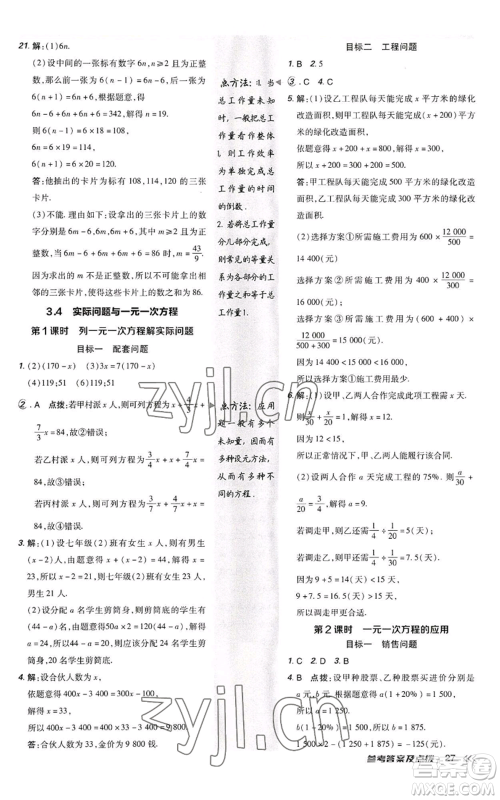 21. 解:(1)6n.
(2)设中间的一张标有数字 6n,n≥2 且为整数,
那么前一张为 6(n-1)=6n-6,后一张为
6(n+1)=6n+6.根据题意,得
6n-6+6n+6n+6=342,解得 n=19.
则 6(n-1)=6×18=108,6n=6×19=114,
6(n+1)=6×20=120.
答:他抽出的卡片为 108,114,120 的三张卡
片.
(3)不可能.理由如下:设拿出的三张卡片的数
字分别是 6m-6,6m,6m+6(m≥2 且为整数),
则 6m-6+6m+6m+6=86,解得 m=43/9.
因为卡片数为整数,
所以这些卡片上的数之和不可能为 86.
3.4 实际问题与一元一次方程
第1课时 列一元一次方程解实际问题
目标一 配套问题
1. (2)(170-x) (3)3x=(170-x)
(4)119;51 (6)119;51
②. A 点拨:若甲村派 x 人,则可列方程为 x+4/3x+
7/3x=84,故②错误;
若乙村派 x 人,则可列方程为 3/4x+x+7/4x=
84,故③错误;
若丙村派 x 人,则可列方程为 3/7x+4/7x+x=
84,故④错误.
3. 解:(1)设七年级(2)班有女生 x 人,则男生有
(x-2)人,由题意得 x+(x-2)=44,解得 x=
23.所以七年级(2)班有女生 23 人,男生 21 人.
(2)设分配 a 名学生剪筒身,则剪筒底的学生有
(44-a)人,由题意得 50a×2=120(44-a),解
得 a=24.所以应该分配 24 名学生剪筒身,20
名学生剪筒底.
4. 解:设合伙人数为 x,
依题意得 400x-3 400=300x-100,
移项,得 400x-300x=3 400-100,
合并同类项,得 100x=3 300,
系数化为1,得 x=33,
所以 400x-3 400=400×33-3 400=9 800.
答:合伙人数为 33,金价为 9 800 钱.
点方法:1. 当
总工作量未
知时,一般把总
工作量看作整体
1,则工作效率
为单独完成总
工作量的时间
的倒数.
2. 若将总工作量
分几部分完成,
则常见的等量
关系为各工作
量之和等于总
工作量.
点方法:应用
题一般有多个
未知量,故设
有多种设元方法,
从而有多种不
同的方程.
目标二 工程问题
1. B 2. 5
③. C 4. C
5. 解:(1)设乙工程队每天能完成 x 平方米的绿化
改造面积,则甲工程队每天能完成(x+200)平
方米的绿化改造面积,
依题意得(x+200)+x=800,解得 x=300,
所以 x+200=300+200=500.
答:甲工程队每天能完成 500 平方米的绿化改造
面积,乙工程队每天能完成 300 平方米的绿化改
造面积.
(2)选择方案①所需施工费用为 600×12 000/500=
14 400(元);
选择方案②所需施工费用为 400×12 000/300=
16 000(元);
选择方案③所需施工费用为(600+400)×
12 000/(500+300)=15 000(元).
因为 14 400<15 000<16 000,
所以选择方案①的施工费用最少.
6. 解:(1)设甲、乙两人合作完成此项工程需 x 天.
由题意得 x/30+x/20=1,
解得 x=12.
因为 12<15,所以甲、乙两人能履行该合同.
(2)设两人合作 a 天完成工程的 75%. a/30+
a/20=3/4,解得 a=9.
若调走甲,则乙还需 1/4÷1/20=5(天);
若调走乙,则甲还需 1/4÷1/30=7.5(天).
因为 9+5=14(天)<15 天,
9+7.5=16.5(天)>15 天,
所以调走甲更合适.
第2课时 一元一次方程的应用
目标一 销售问题
1. C 2. D 3. C
4. B 点拨:设甲种股票、乙种股票买进价分别是
a 元,b 元.根据题意得 a(1+20%)=1 500,
所以 a=1 250,
b(1-20%)=1 600,所以 b=2 000.
1 500×2-(1 250+2 000)=-250(元).
参考答案及点拨 27
zyjl.cn